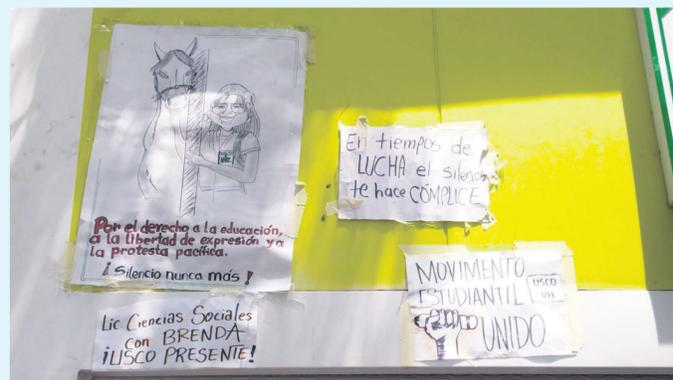 Por el derecho a la educación,
a la libertad de expresión y a
la protesta pacífica.
¡Silencio nunca más!
Lic. Ciencias Sociales
con BRENDA
¡USCO PRESENTE!
En tiempos de
LUCHA el silencio
te hace CÓMPLICE
MOVIMENTO
ESTUDIANTIL
USCO
UNIDO